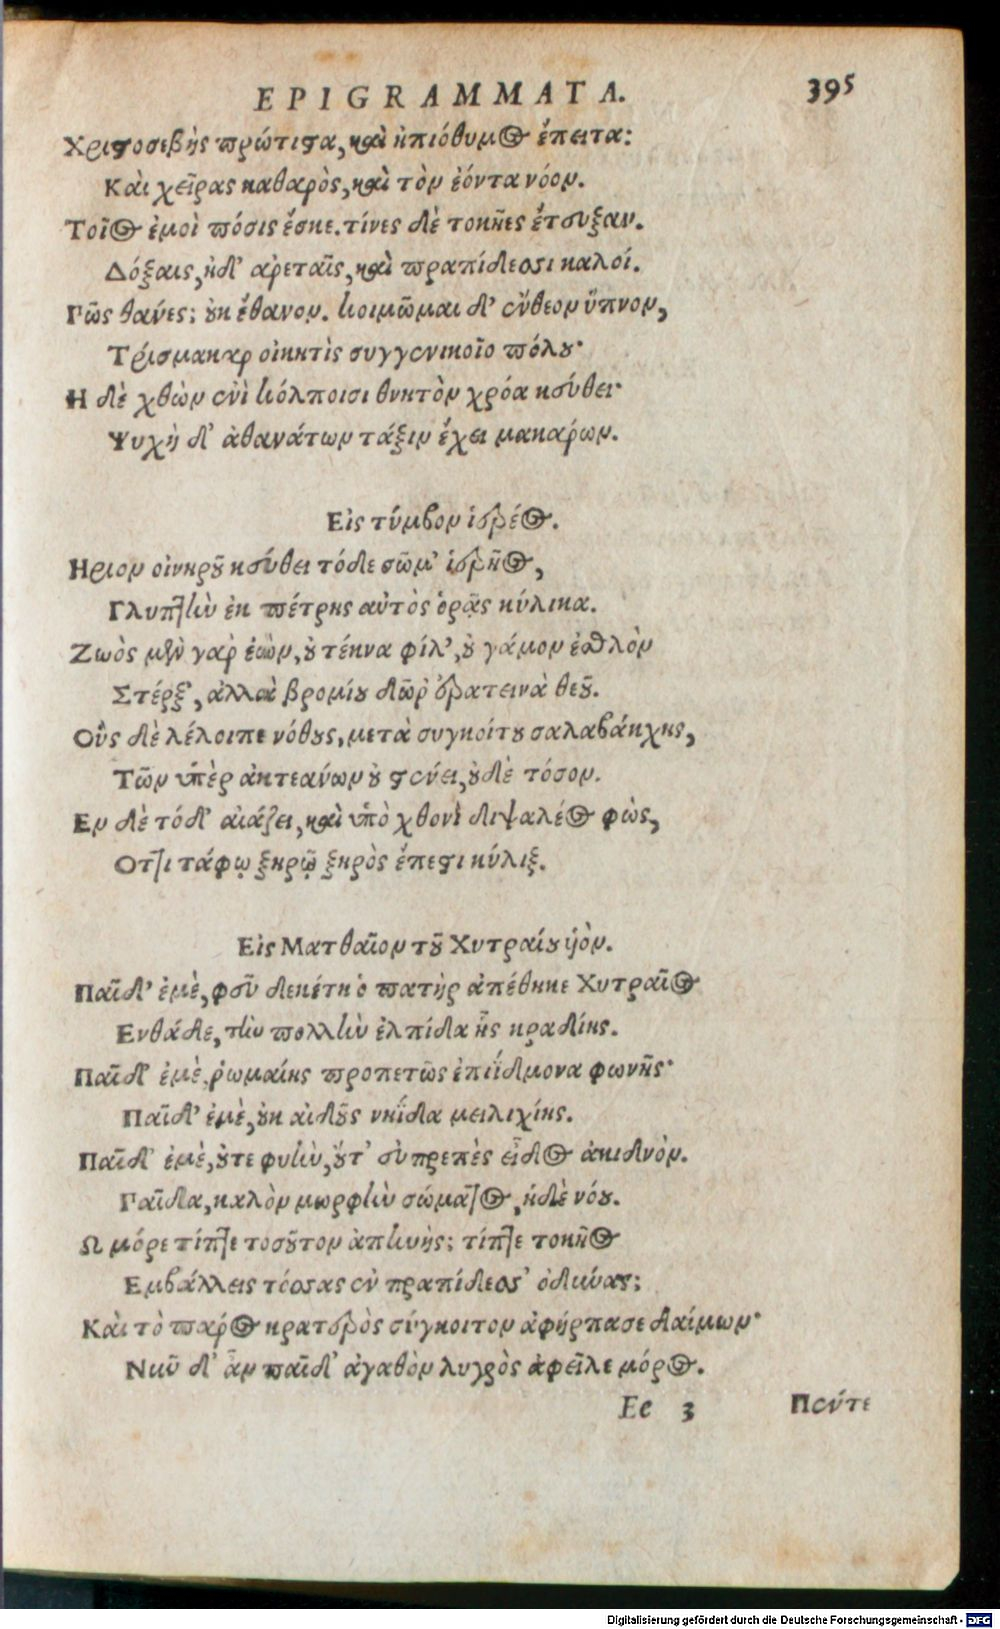 EPIGRAMMATA. 395
Χριστοσεβὴς πρώτιστα, καὶ ἠπιόθυμος ἔπειτα:
Καὶ χεῖρας καθαρὸς, καὶ τὸν ἐόντα νόον.
Τοῖος ἐμοὶ πόσις ἔσκε. τίνες δὲ τοκῆες ἔτευξαν.
Δόξαις, ἠδ' ἀρεταῖς, καὶ πραπίδεσσι καλοί.
Γῶς θανές; οὐκ ἔθανον. κοιμῶμαι δ' ἔνθεον ὕπνον,
Τρίσμακαρ οἰκητὶς συγγενικοῖο πόλου·
Η δὲ χθὼν ἐνὶ κόλποισι θνητὸν χρόα κεύθει·
Ψυχὴ δ' ἀθανάτων τάξιν ἔχει μακάρων.
Εἰς τύμβον ἱερέος.
Ηριον οἰνηροῦ κεύθει τόδε σῶμ' ἱερῆος,
Γλυπτὴν ἐκ πέτρης αὐτὸς ὁρᾷς κύλικα.
Ζωὸς μὲν γὰρ ἐὼν, οὐ τέκνα φίλ', οὐ γάμον ἐσθλὸν
Στέρξ', ἀλλὰ βρομίου δῶρ' ἐρατεινὰ θεοῦ.
Οὓς δὲ λέλοιπε νόθους, μετὰ συγκοίτου σαλαβάκχης,
Τῶν ὑπὲρ ἀκτεάνων οὐ στένει, οὐδὲ τόσον.
Εν δὲ τόδ' αἰάζει, καὶ ὑπὸ χθονὶ διψαλέος φὼς,
Οττι τάφῳ ξηρῷ ξηρὸς ἔπεστι κύλιξ.
Εἰς Ματθαῖον τοῦ Χυτραίου υἱόν.
Παῖδ' ἐμὲ, φεῦ δεκέτη ὁ πατὴρ ἀπέθηκε Χυτραῖος
Ενθάδε, τὴν πολλὴν ἐλπίδα ἧς κραδίης.
Παῖδ' ἐμὲ, ῥωμαίης προπετῶς ἐπιΐδμονα φωνῆς·
Παῖδ' ἐμὲ, οὐκ αἰδοῦς νηΐδα μειλιχίης.
Παῖδ' ἐμὲ, οὔτε φυὴν, οὔτ' εὐπρεπὲς εἶδος ἀκιδνὸν.
Γαῖδα, καλὸν μορφὴν σώματος, ἠδὲ νόου.
Ω μόρε τίπτε τοσοῦτον ἀπηνής; τίπτε τοκῆος
Εμβάλλεις τόσσας ἐν πραπίδεσσ' ὀδύνας;
Καὶ τὸ πάρος κρατερὸς σύγκοιτον ἀφήρπασε δαίμων·
Νῦν δ' ἂν παῖδ' ἀγαθὸν λυγρὸς ἀφεῖλε μόρος.
Ee 3 Πέντε
Digitalisierung gefördert durch die Deutsche Forschungsgemeinschaft - DFG